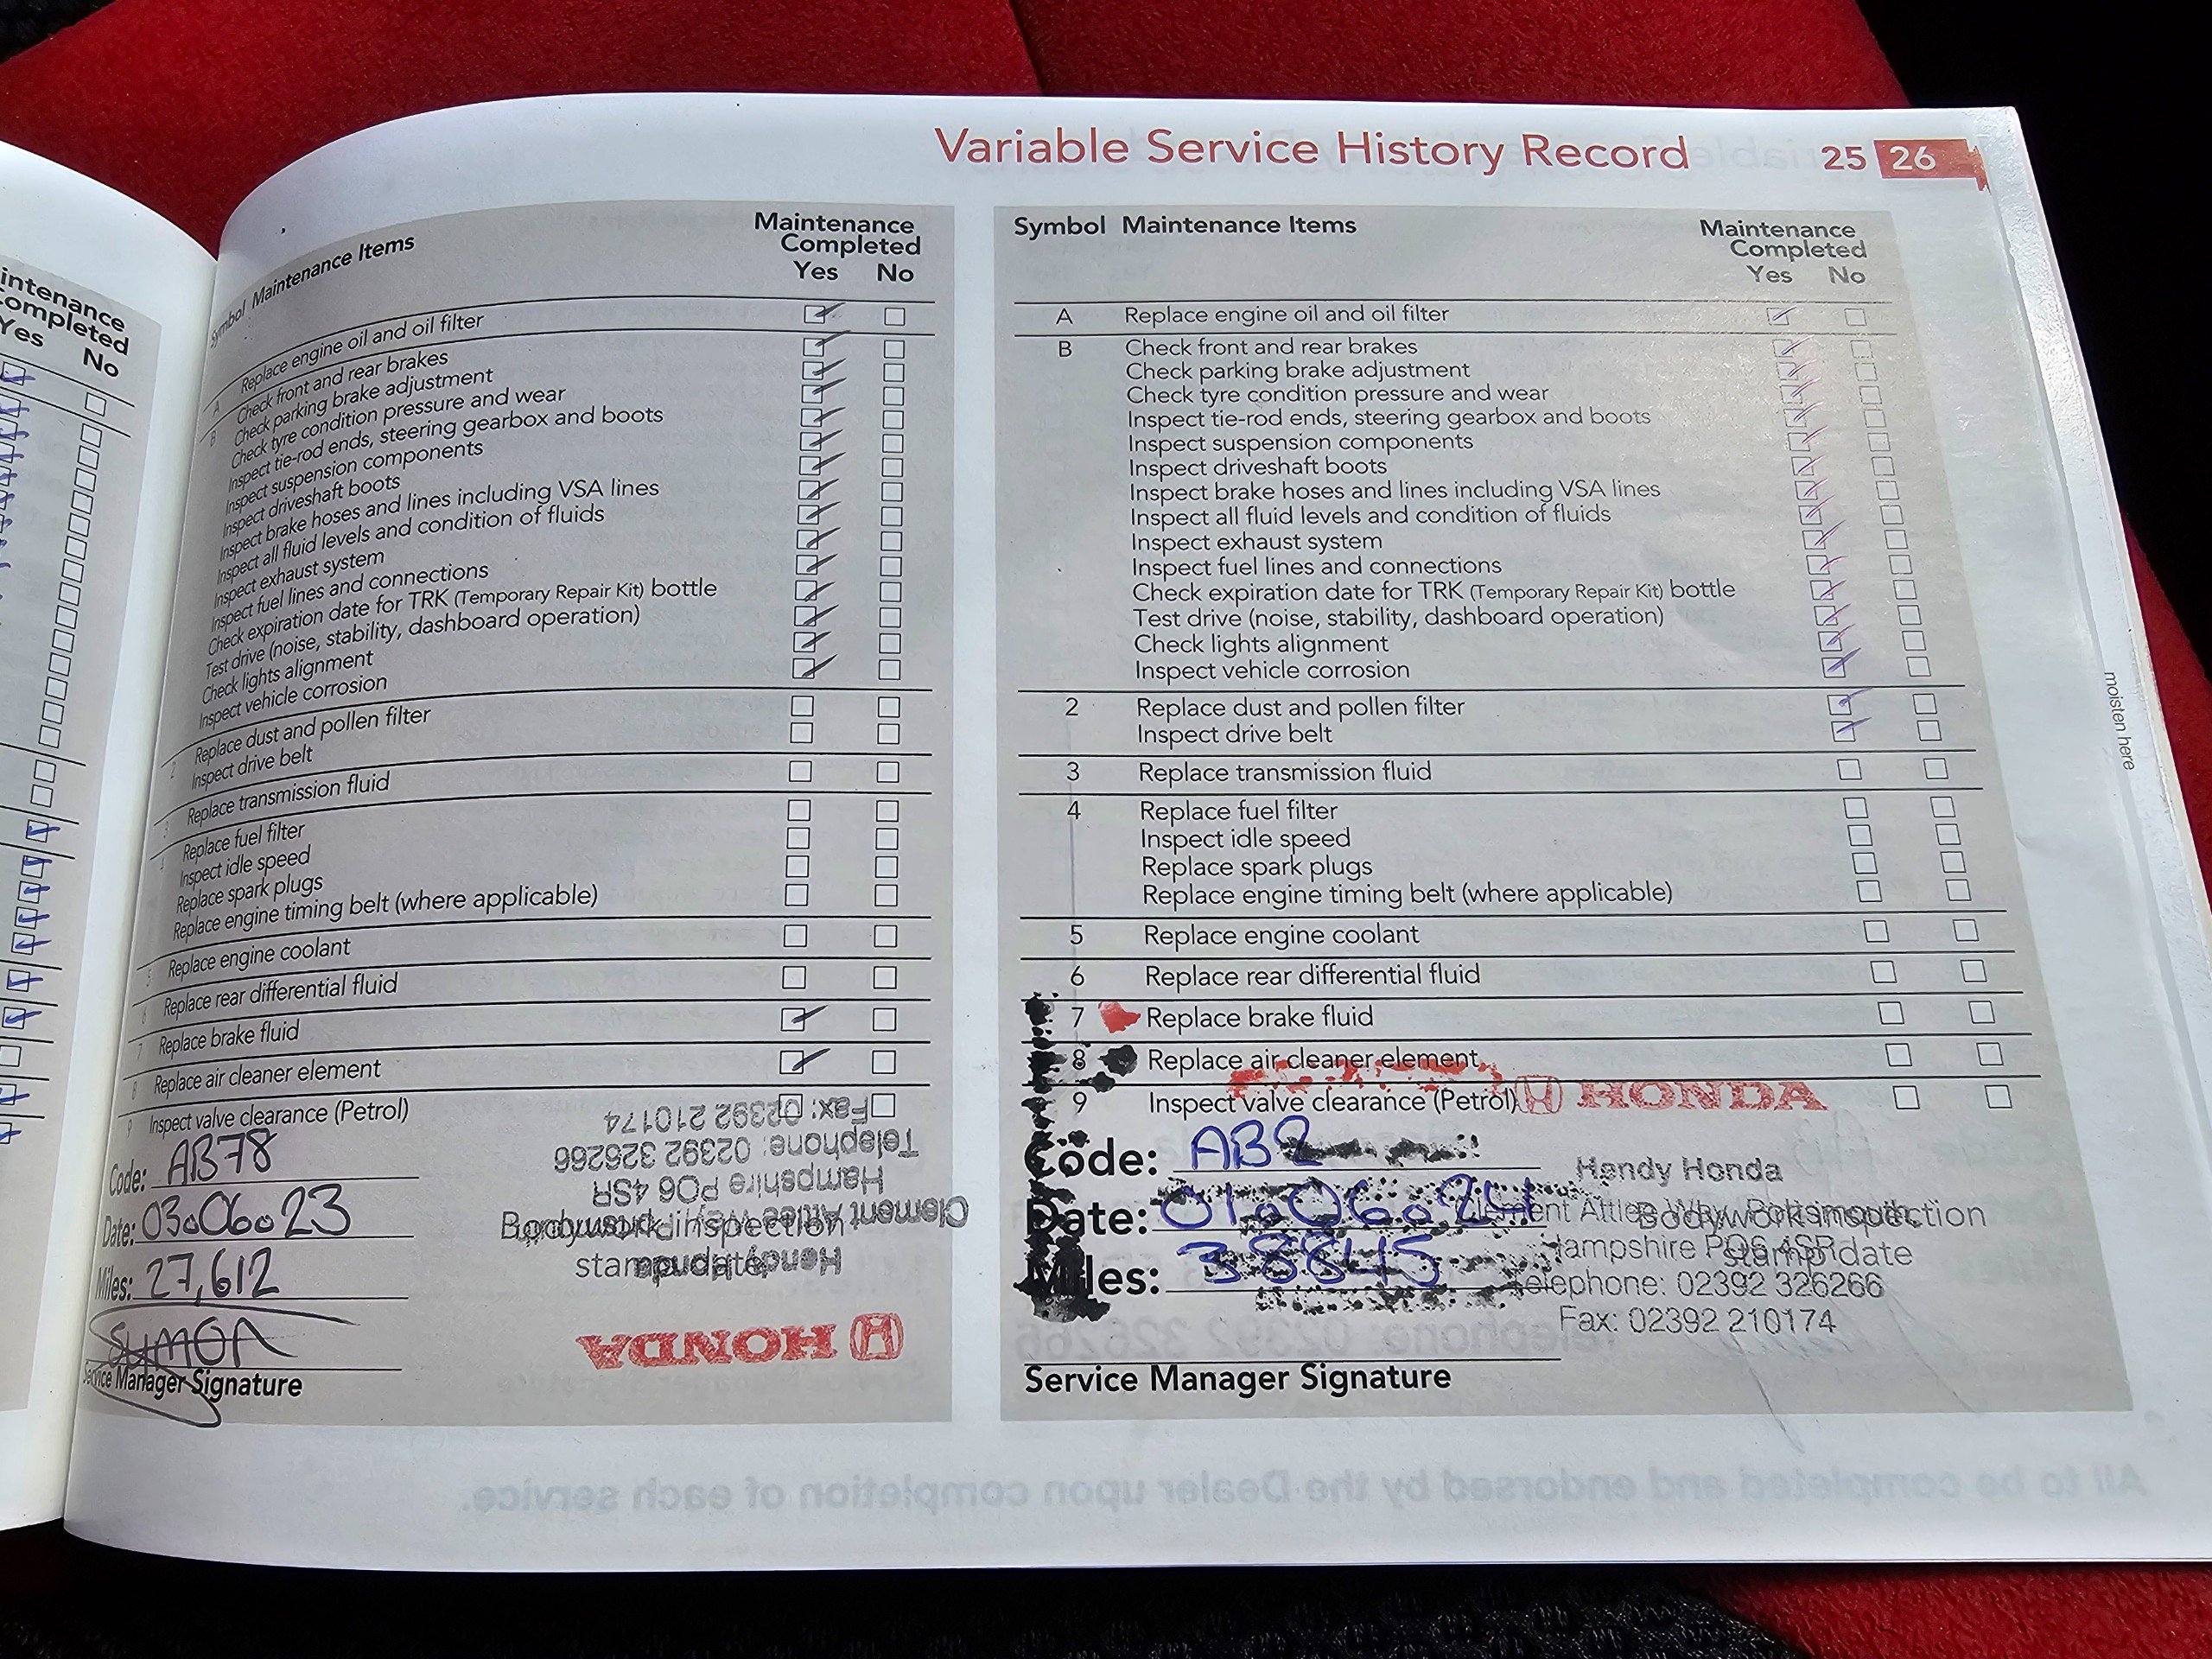 Variable Service History Record 25 26
intenance
Completed
Yes No
Symbol Maintenance Items
Maintenance
Completed
Yes No
A Replace engine oil and oil filter
B Check front and rear brakes
Check parking brake adjustment
Check tyre condition pressure and wear
Inspect tie-rod ends, steering gearbox and boots
Inspect suspension components
Inspect driveshaft boots
Inspect brake hoses and lines including VSA lines
Inspect all fluid levels and condition of fluids
Inspect exhaust system
Inspect fuel lines and connections
Check expiration date for TRK (Temporary Repair Kit) bottle
Test drive (noise, stability, dashboard operation)
Check lights alignment
Inspect vehicle corrosion
2 Replace dust and pollen filter
Inspect drive belt
3 Replace transmission fluid
4 Replace fuel filter
Inspect idle speed
Replace spark plugs
Replace engine timing belt (where applicable)
5 Replace engine coolant
6 Replace rear differential fluid
7 Replace brake fluid
8 Replace air cleaner element
9 Inspect valve clearance (Petrol)
Code: AB78
Date: 03.06.23
Miles: 27,612
Service Manager Signature
Bodywork inspection
stamp/date
HONDA
Hendy Honda
Clement Attlee Way, Portsmouth,
Hampshire PO6 4SR
Telephone: 02392 326266
Fax: 02392 210174
Symbol Maintenance Items
Maintenance
Completed
Yes No
A Replace engine oil and oil filter
B Check front and rear brakes
Check parking brake adjustment
Check tyre condition pressure and wear
Inspect tie-rod ends, steering gearbox and boots
Inspect suspension components
Inspect driveshaft boots
Inspect brake hoses and lines including VSA lines
Inspect all fluid levels and condition of fluids
Inspect exhaust system
Inspect fuel lines and connections
Check expiration date for TRK (Temporary Repair Kit) bottle
Test drive (noise, stability, dashboard operation)
Check lights alignment
Inspect vehicle corrosion
2 Replace dust and pollen filter
Inspect drive belt
3 Replace transmission fluid
4 Replace fuel filter
Inspect idle speed
Replace spark plugs
Replace engine timing belt (where applicable)
5 Replace engine coolant
6 Replace rear differential fluid
7 Replace brake fluid
8 Replace air cleaner element
9 Inspect valve clearance (Petrol)
HONDA
Code: AB2
Date: 01.06.24
Miles: 38845
Hendy Honda
Clement Attlee Way, Portsmouth,
Hampshire PO6 4SR
Telephone: 02392 326266
Fax: 02392 210174
Bodywork inspection
stamp/date
Service Manager Signature
moisten here
All to be completed and endorsed by the Dealer upon completion of each service.